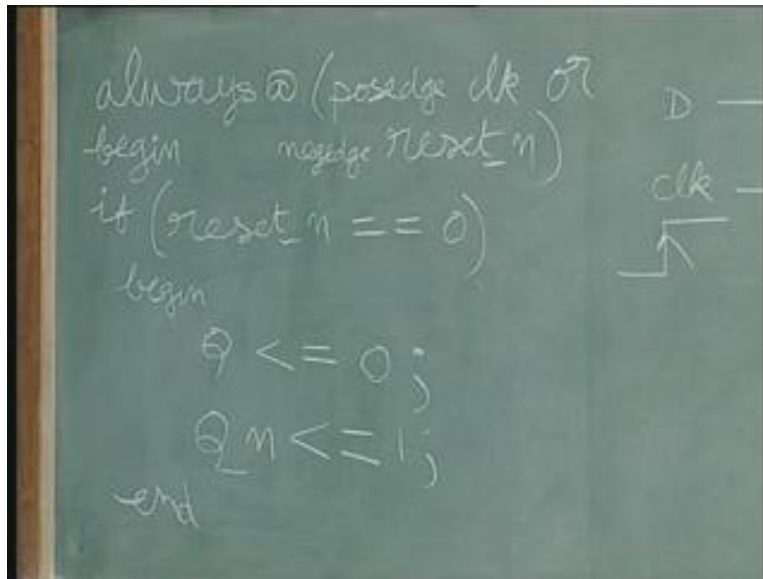 always@(posedge clk or
begin negedge reset_n)
if (reset_n == 0)
begin
Q <= 0;
Q_n <= 1;
end
D
clk